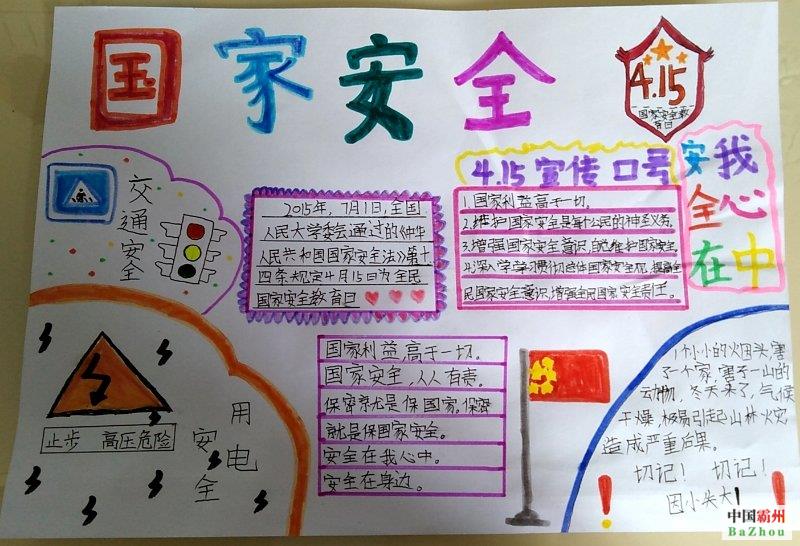 国家安全
4.15
国家安全教
育日
4.15宣传口号
我心中
安全在
交通安全
2015年,7月1日,全国
人民大学委会通过的《中华
人民共和国国家安全法》第十
四条规定4月15日为全民
国家安全教育日
1.国家利益高于一切。
2.维护国家安全是每个公民的神圣义务。
3.增强国家安全意识,自觉维护国家安全
4.深入学习贯彻总体国家安全观,提高全
民国家安全意识,增强全民国家安全责任。
止步 高压危险
用电
安全
国家利益,高于一切。
国家安全,人人有责。
保密就是保国家,保密
就是保国家安全。
安全在我心中。
安全在身边。
1个小小的火因头,害
了一个家,害于一山的
动物,冬天来了,气候
干燥,极易引起山林火灾
造成严重后果。
切记! 切记!
因小头大!
中国霸州
BaZhou